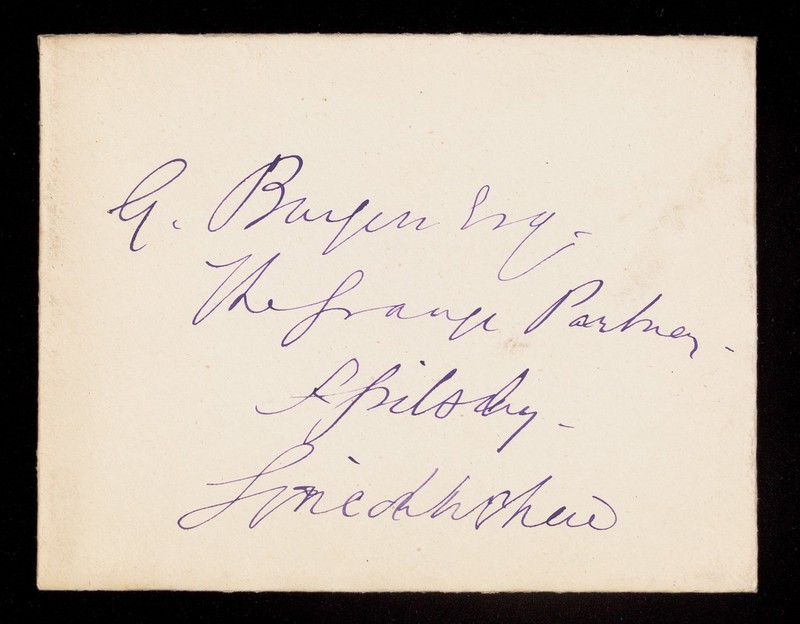 G. Burgess Esq.
The Grange Partney -
Spilsby -
Lincolnshire